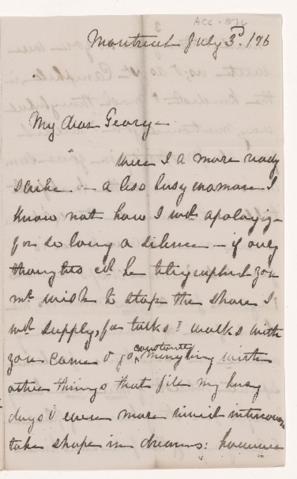 Acc. 876
Montreal July 3d. 176
My dear George
Were I a more ready
scribe - a less busy woman I
know not how I wd. apologize
for so long a silence - if only
thoughts cd. be telegraphed you
mt. wish to stop the share I
wd. supply, for talks & walks with
you come & go constantly mingling with
other things that fill my busy
days & even more vivid intercourse
take shape in dreams: however